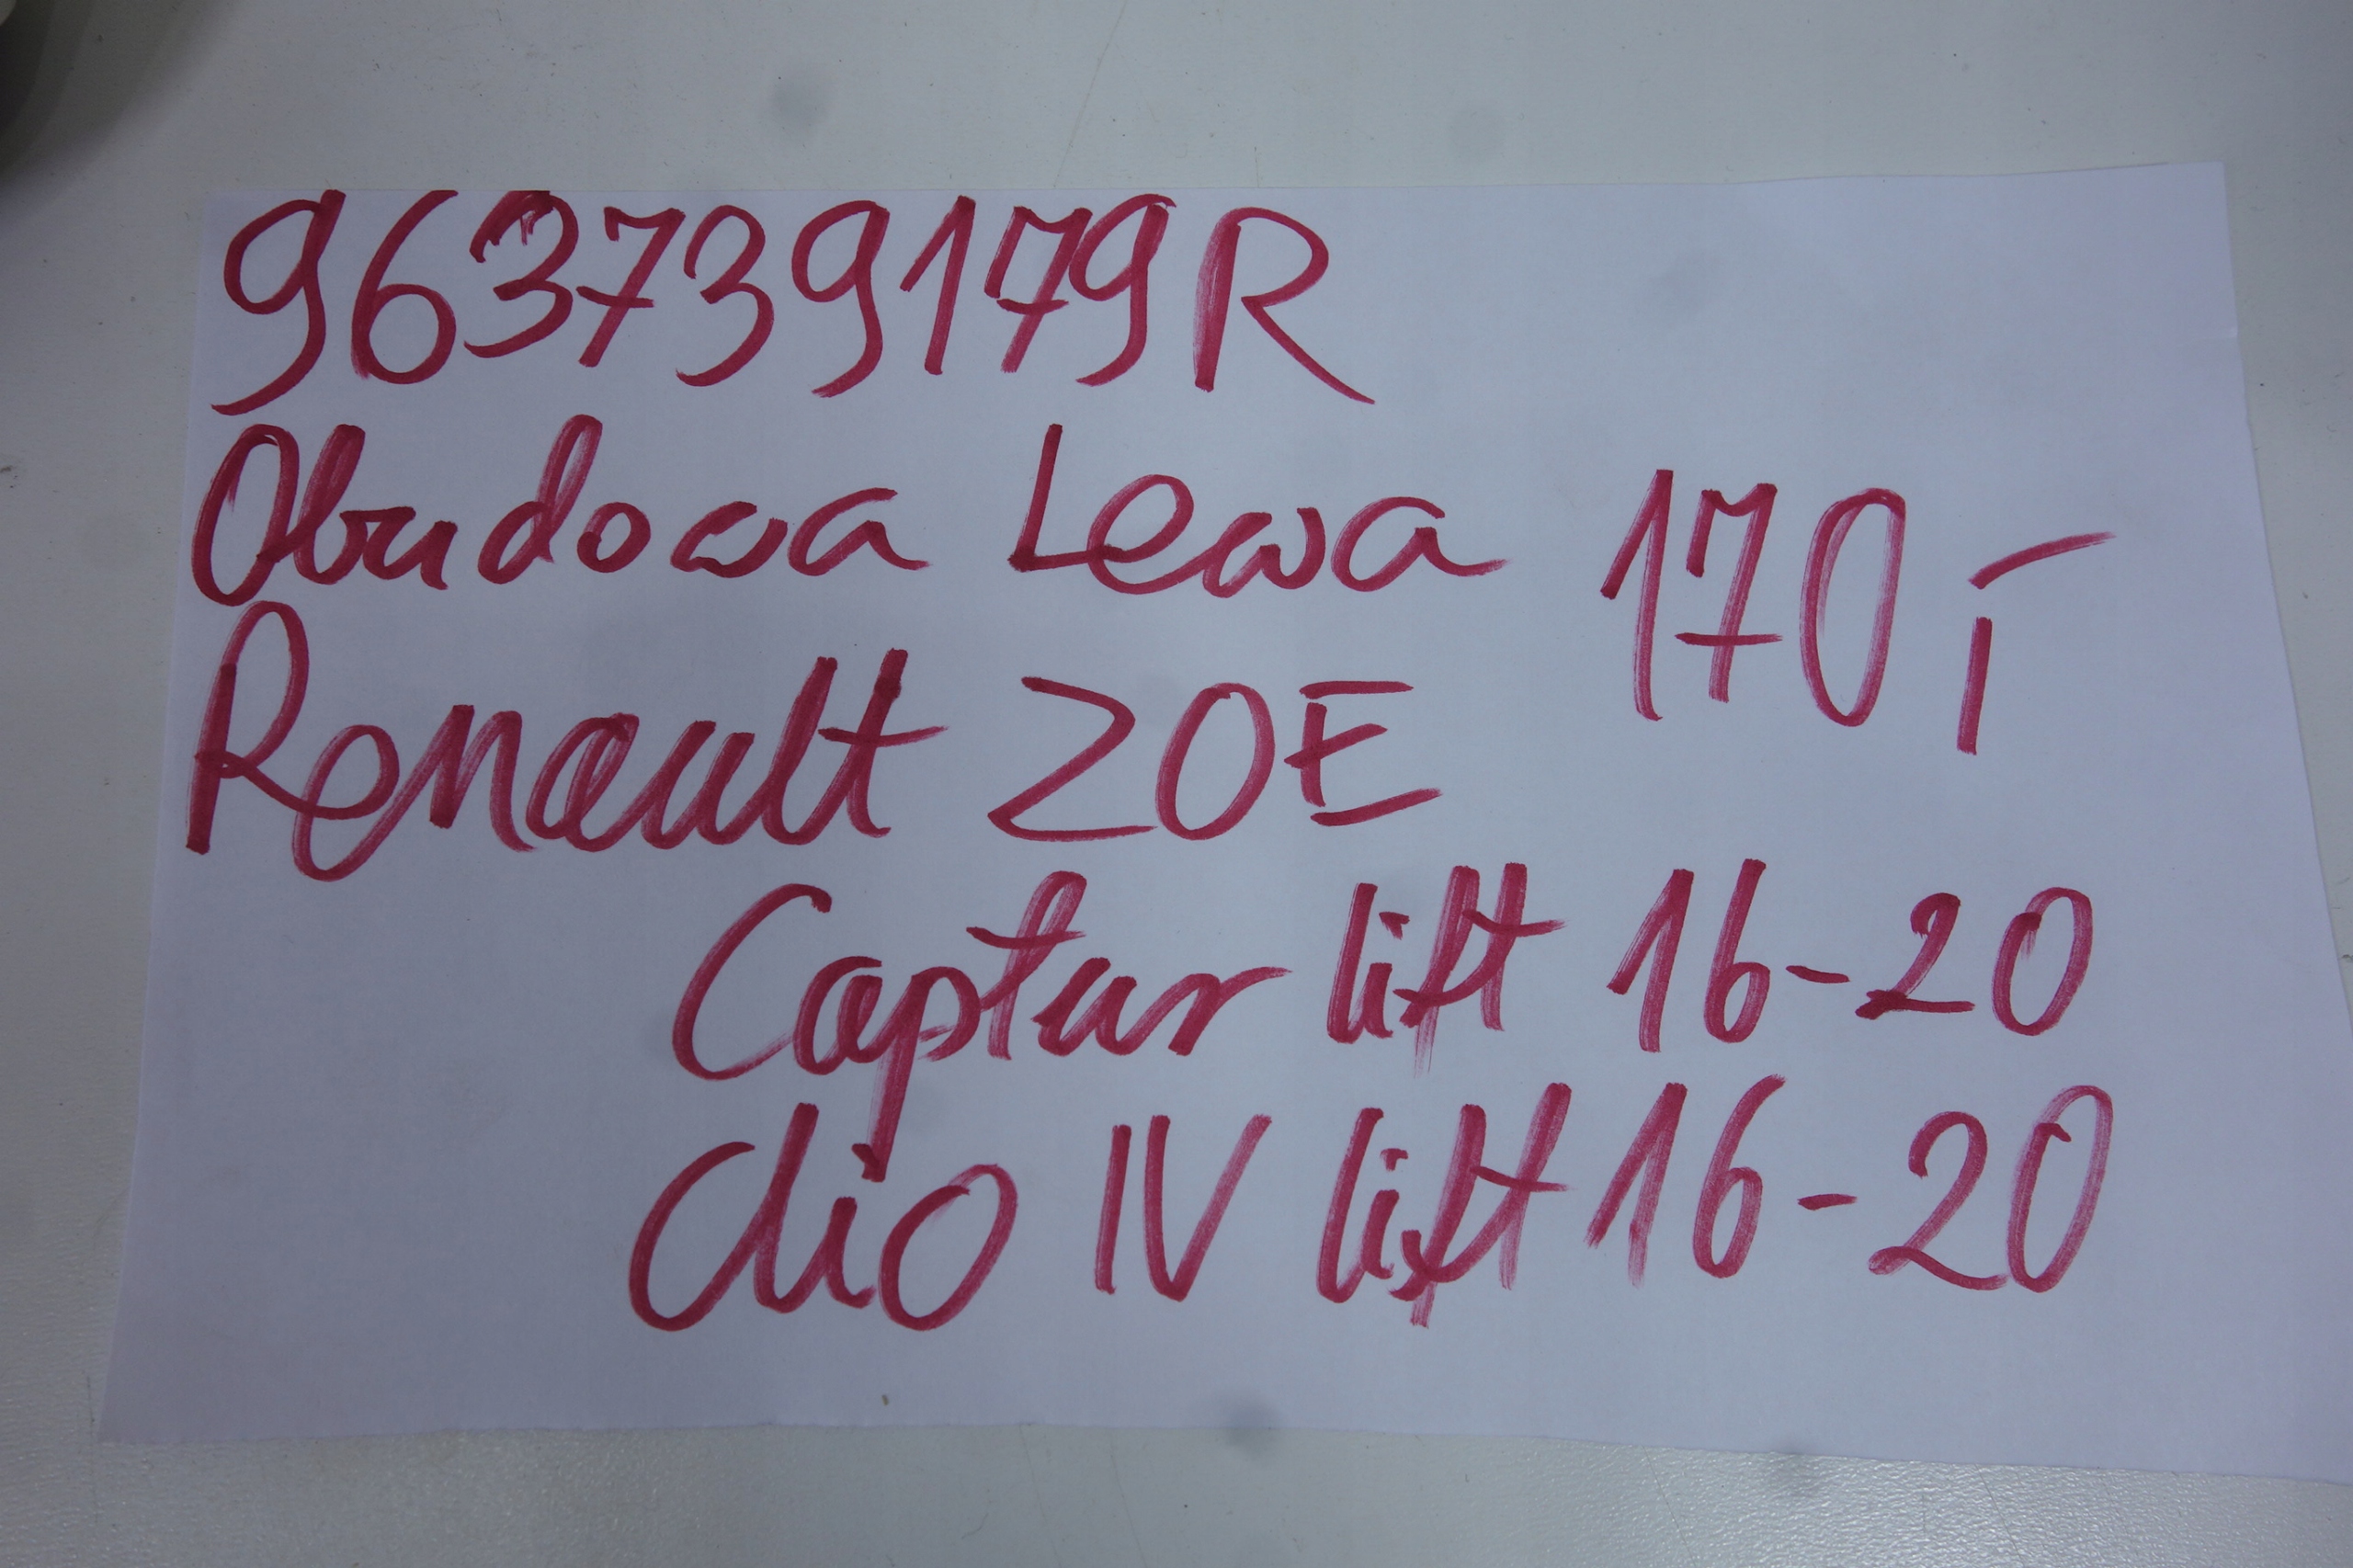 963739179R
Obudowa Lewa 170,-
Renault ZOE
Captur lift 16-20
Clio IV lift 16-20